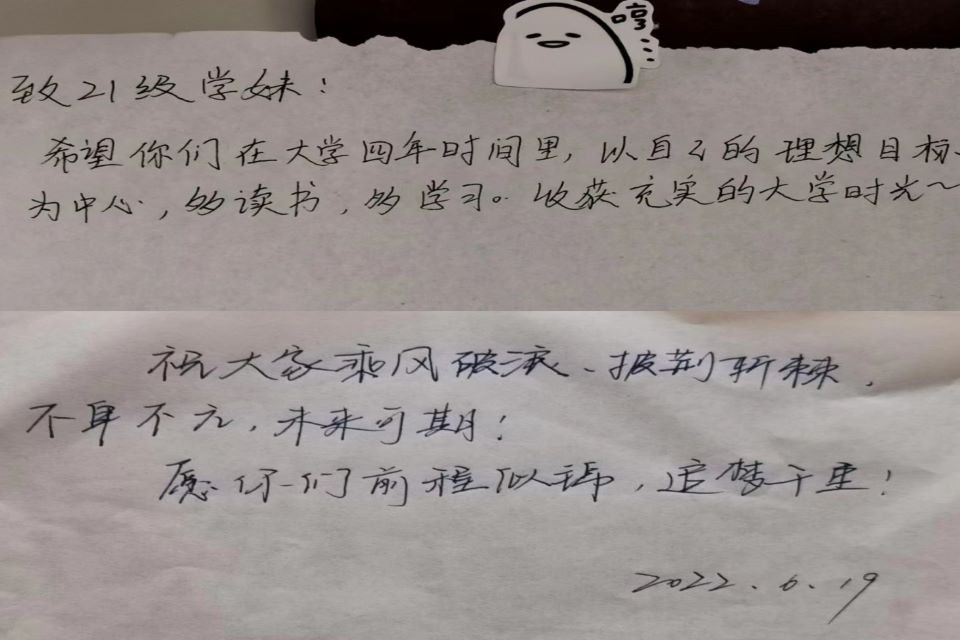 哼
致21级学妹：
希望你们在大学四年时间里，以自己的理想目标
为中心，多读书，多学习。收获充实的大学时光～
祝大家乘风破浪、披荆斩棘，
不卑不亢，未来可期！
愿你们前程似锦，追梦千里！
2022.6.19